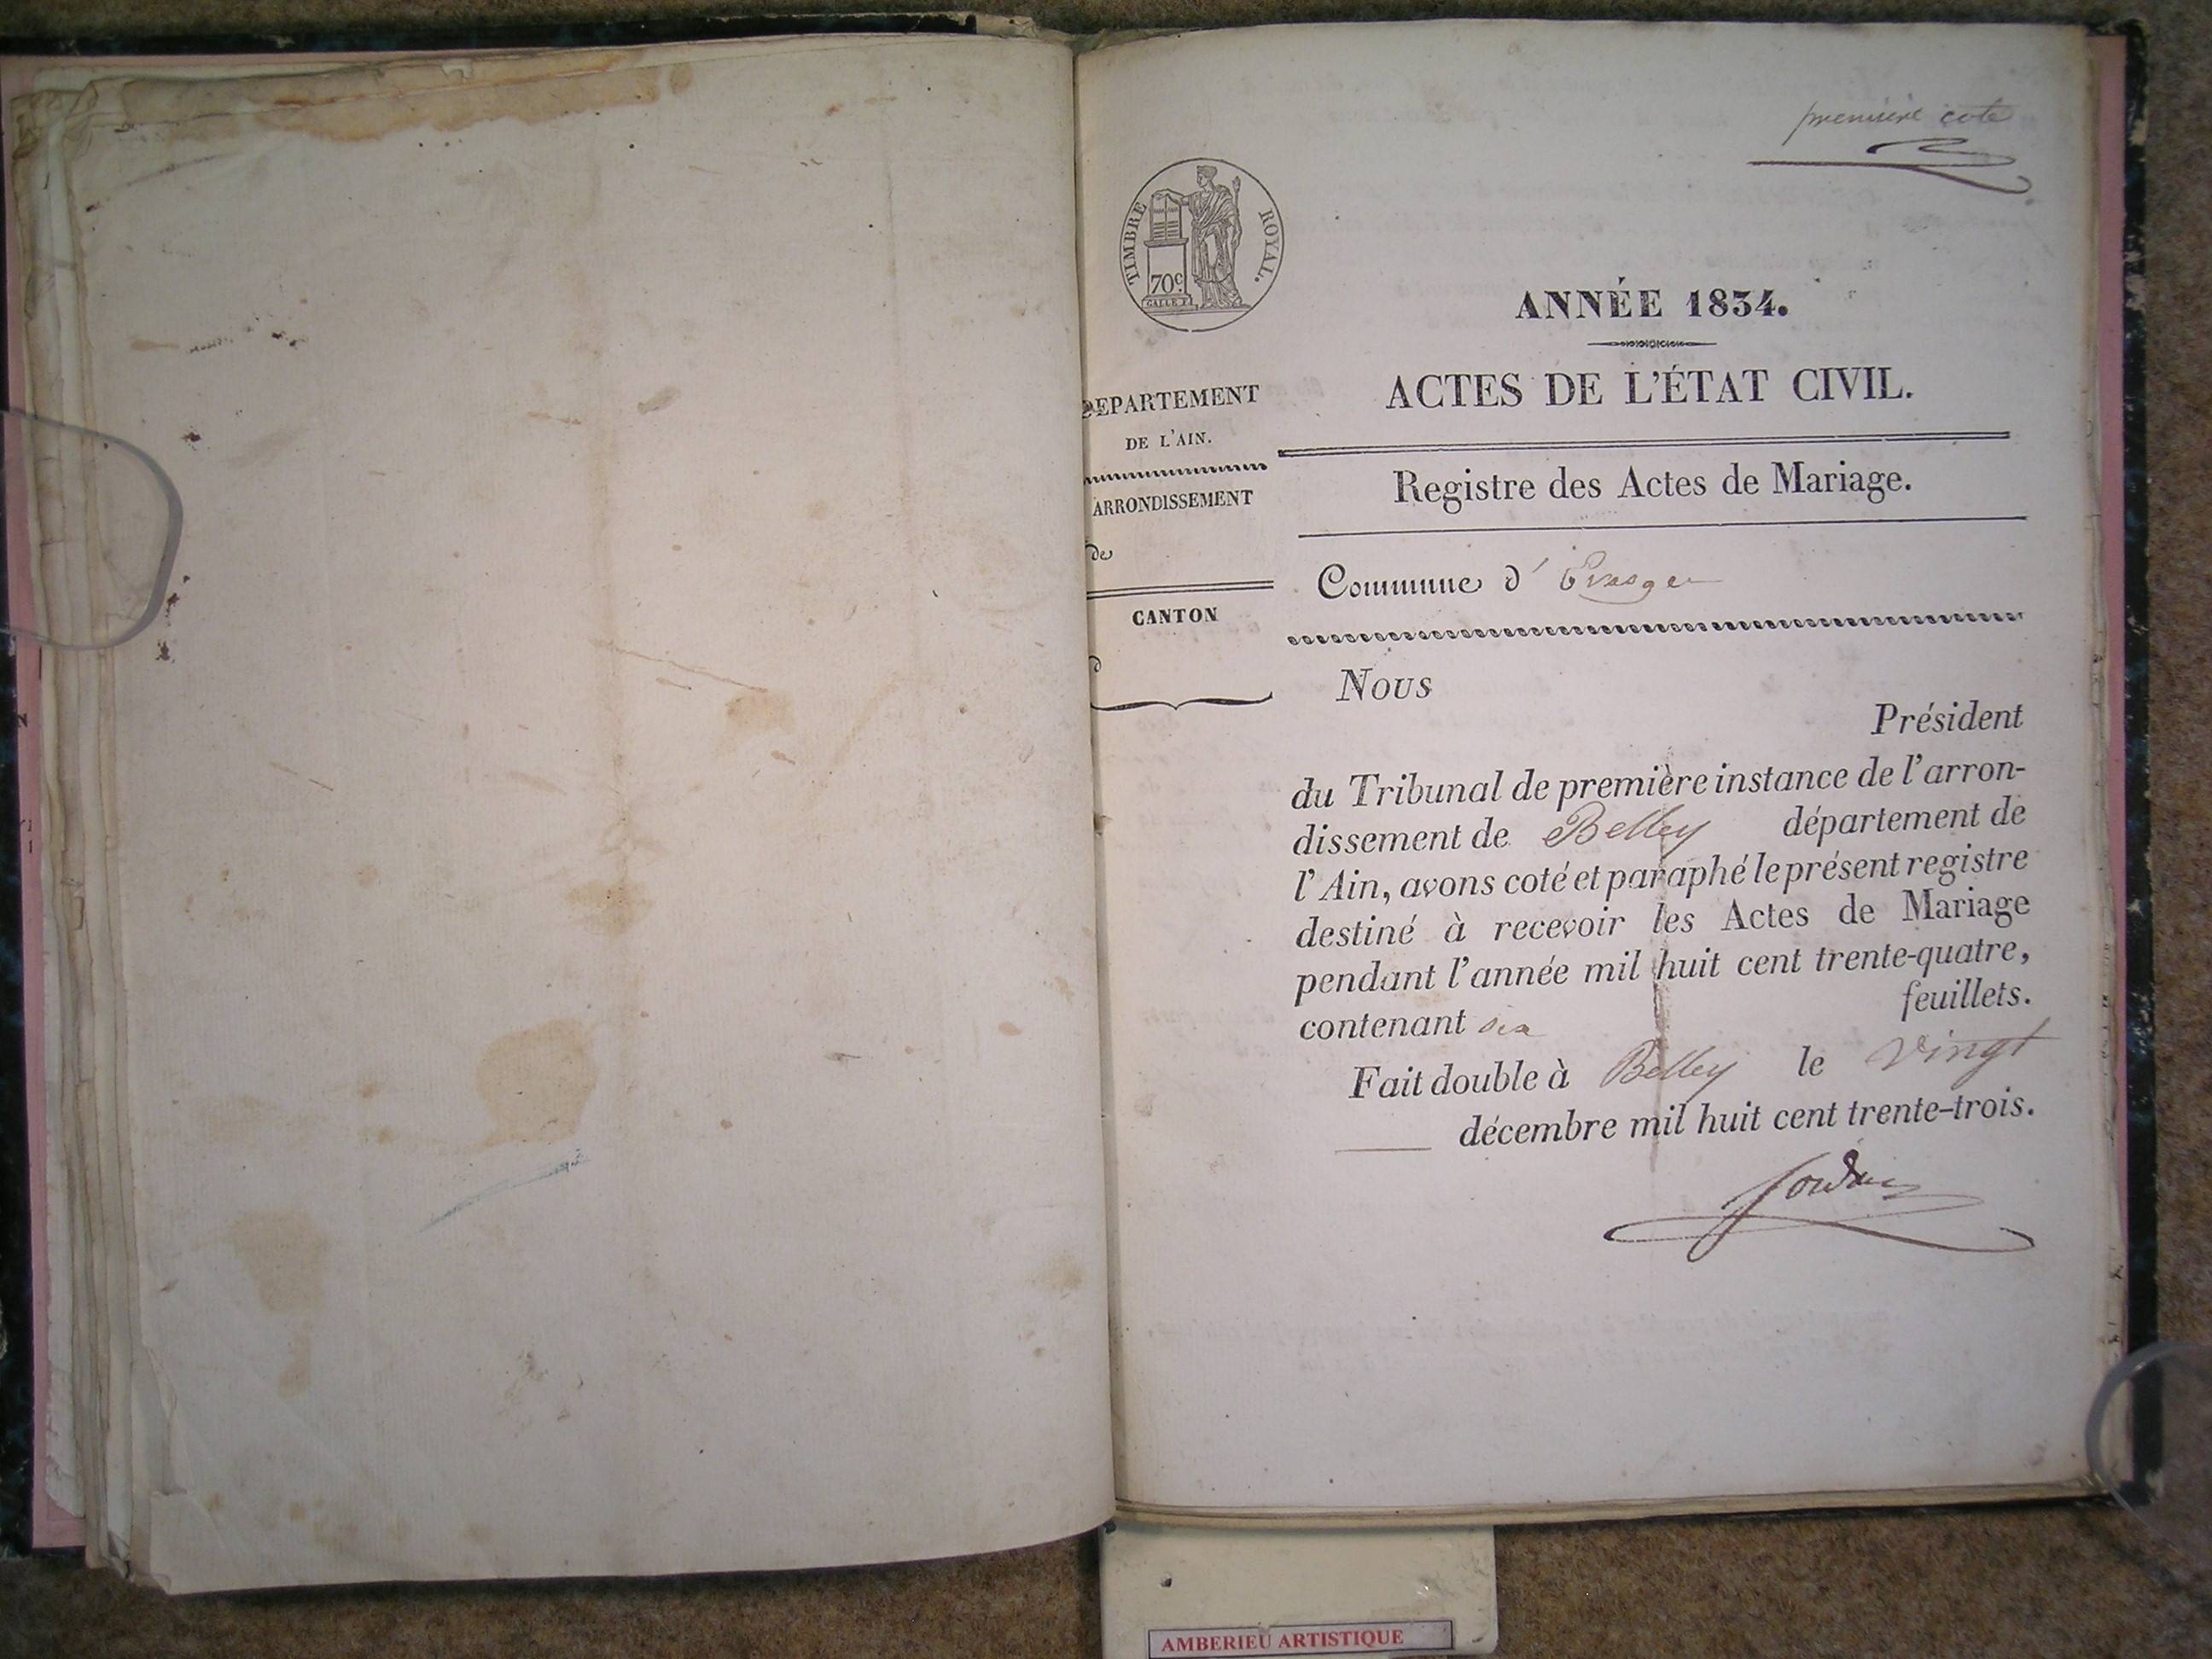 première cote
TIMBRE ROYAL.
70c.
GALLE F.
ANNÉE 1834.
ACTES DE L'ÉTAT CIVIL.
DEPARTEMENT
DE L'AIN.
Registre des Actes de Mariage.
ARRONDISSEMENT
de
Commune d'
CANTON
Nous
Président
du Tribunal de première instance de l'arron-
dissement de Belley département de
l'Ain, avons coté et paraphé le présent registre
destiné à recevoir les Actes de Mariage
pendant l'année mil huit cent trente-quatre,
contenant six feuillets.
Fait double à Belley le vingt
décembre mil huit cent trente-trois.
AMBERIEU ARTISTIQUE